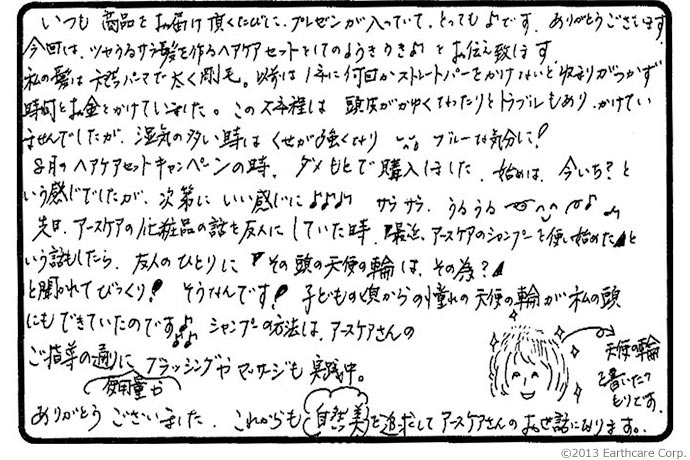 いつも 商品をお届け頂くたびに、プレゼントが入っていて、とっても♪です。ありがとうございます
今回は、ツヤうるサラ髪を作るヘアケアセットとしての お伝え致します
私の髪は天然パーマで太く剛毛。以前は1年に何回かストレートパーマをかけないと収まりがつかず
時間とお金をかけていました。この2年程は 頭皮がかゆくなったりとトラブルもあり、かけてい
ませんでしたが、湿気の多い時はくせが強くなり ブルーな気分に!
8月のヘアケアセットキャンペーンの時、ダメもとで購入しました。始めは、今いち?と
いう感じでしたが、次第にいい感じに♪♪♪ サラサラ、うるうる ♪
先日、アースケアの化粧品の話を友人にしていた時、「最近、アースケアのシャンプーを使い始めた」と
いう話もしたら、友人のひとりに『その頭の天使の輪は、その為?』
と聞かれてびっくり! そうなんです! 子どもの頃からの憧れの天使の輪が私の頭
にもできていたのです♪♪ シャンプーの方法は、アースケアさんの
ご指導の通りに ブラッシングやマッサージも実践中。
使用量や
天使の輪
を書いたつ
もりです。
ありがとうございました。これからも自然美を追求してアースケアさんのお世話になります。
©2013 Earthcare Corp.